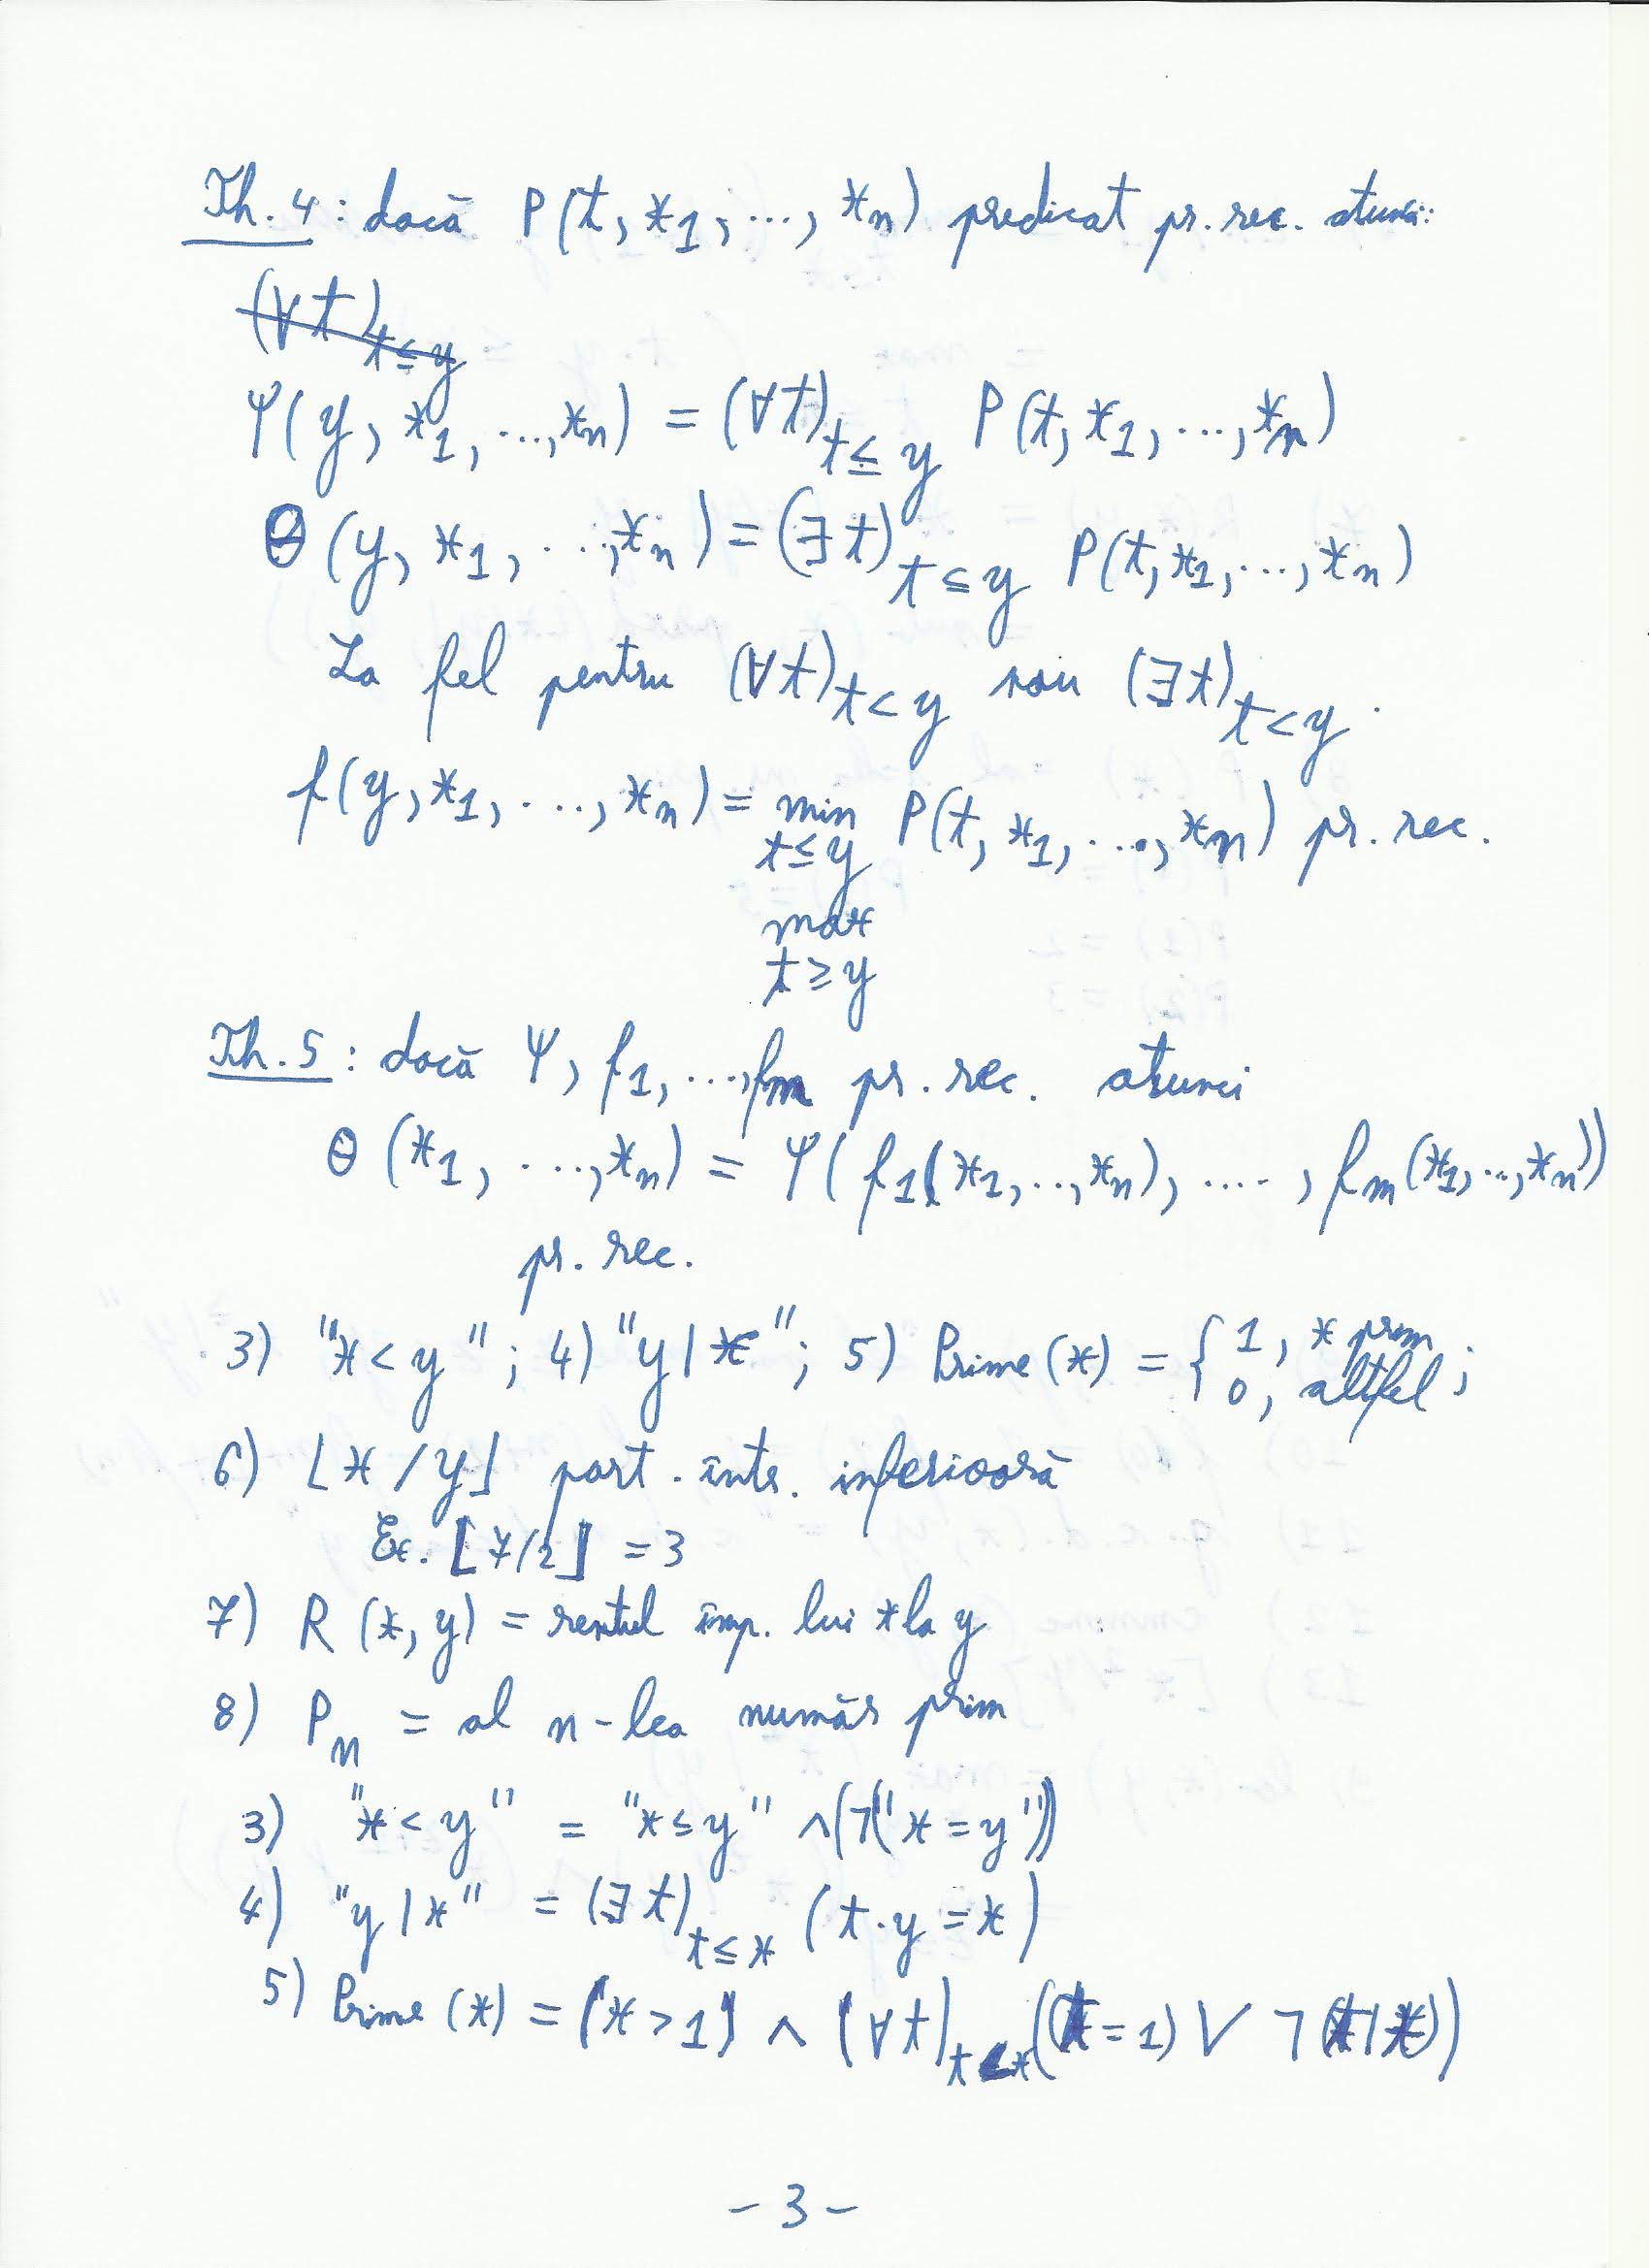 Th. 4 : dacă P(t, x1, ..., xn) predicat pr. rec. atunci:
(∀t) t≤y
Ψ(y, x1, ..., xn) = (∀t) t≤y P(t, x1, ..., xn)
Θ(y, x1, ..., xn) = (∃t) t≤y P(t, x1, ..., xn)
La fel pentru (∀t) t<y sau (∃t) t<y .
f(y, x1, ..., xn) = min t≤y P(t, x1, ..., xn) pr. rec.
max
t≥y
Th. 5 : dacă Ψ, f1, ..., fm pr. rec. atunci
Θ(x1, ..., xn) = Ψ(f1(x1, .., xn), ...., fm(x1, .., xn))
pr. rec.
3) "x < y" ; 4) "y | x" ; 5) Prime (x) = { 1, x prim
0, altfel ;
6) ⌊x / y⌋ part. într. inferioară
Ex. ⌊7/2⌋ = 3
7) R (x, y) = restul împ. lui x la y
8) Pn = al n-lea număr prim
3) "x < y" = "x ≤ y" ∧ (¬("x = y"))
4) "y | x" = (∃t) t≤x (t · y = x)
5) Prime (x) = (x > 1) ∧ (∀t) t<x ((t = 1) ∨ ¬(t | x))
- 3 -